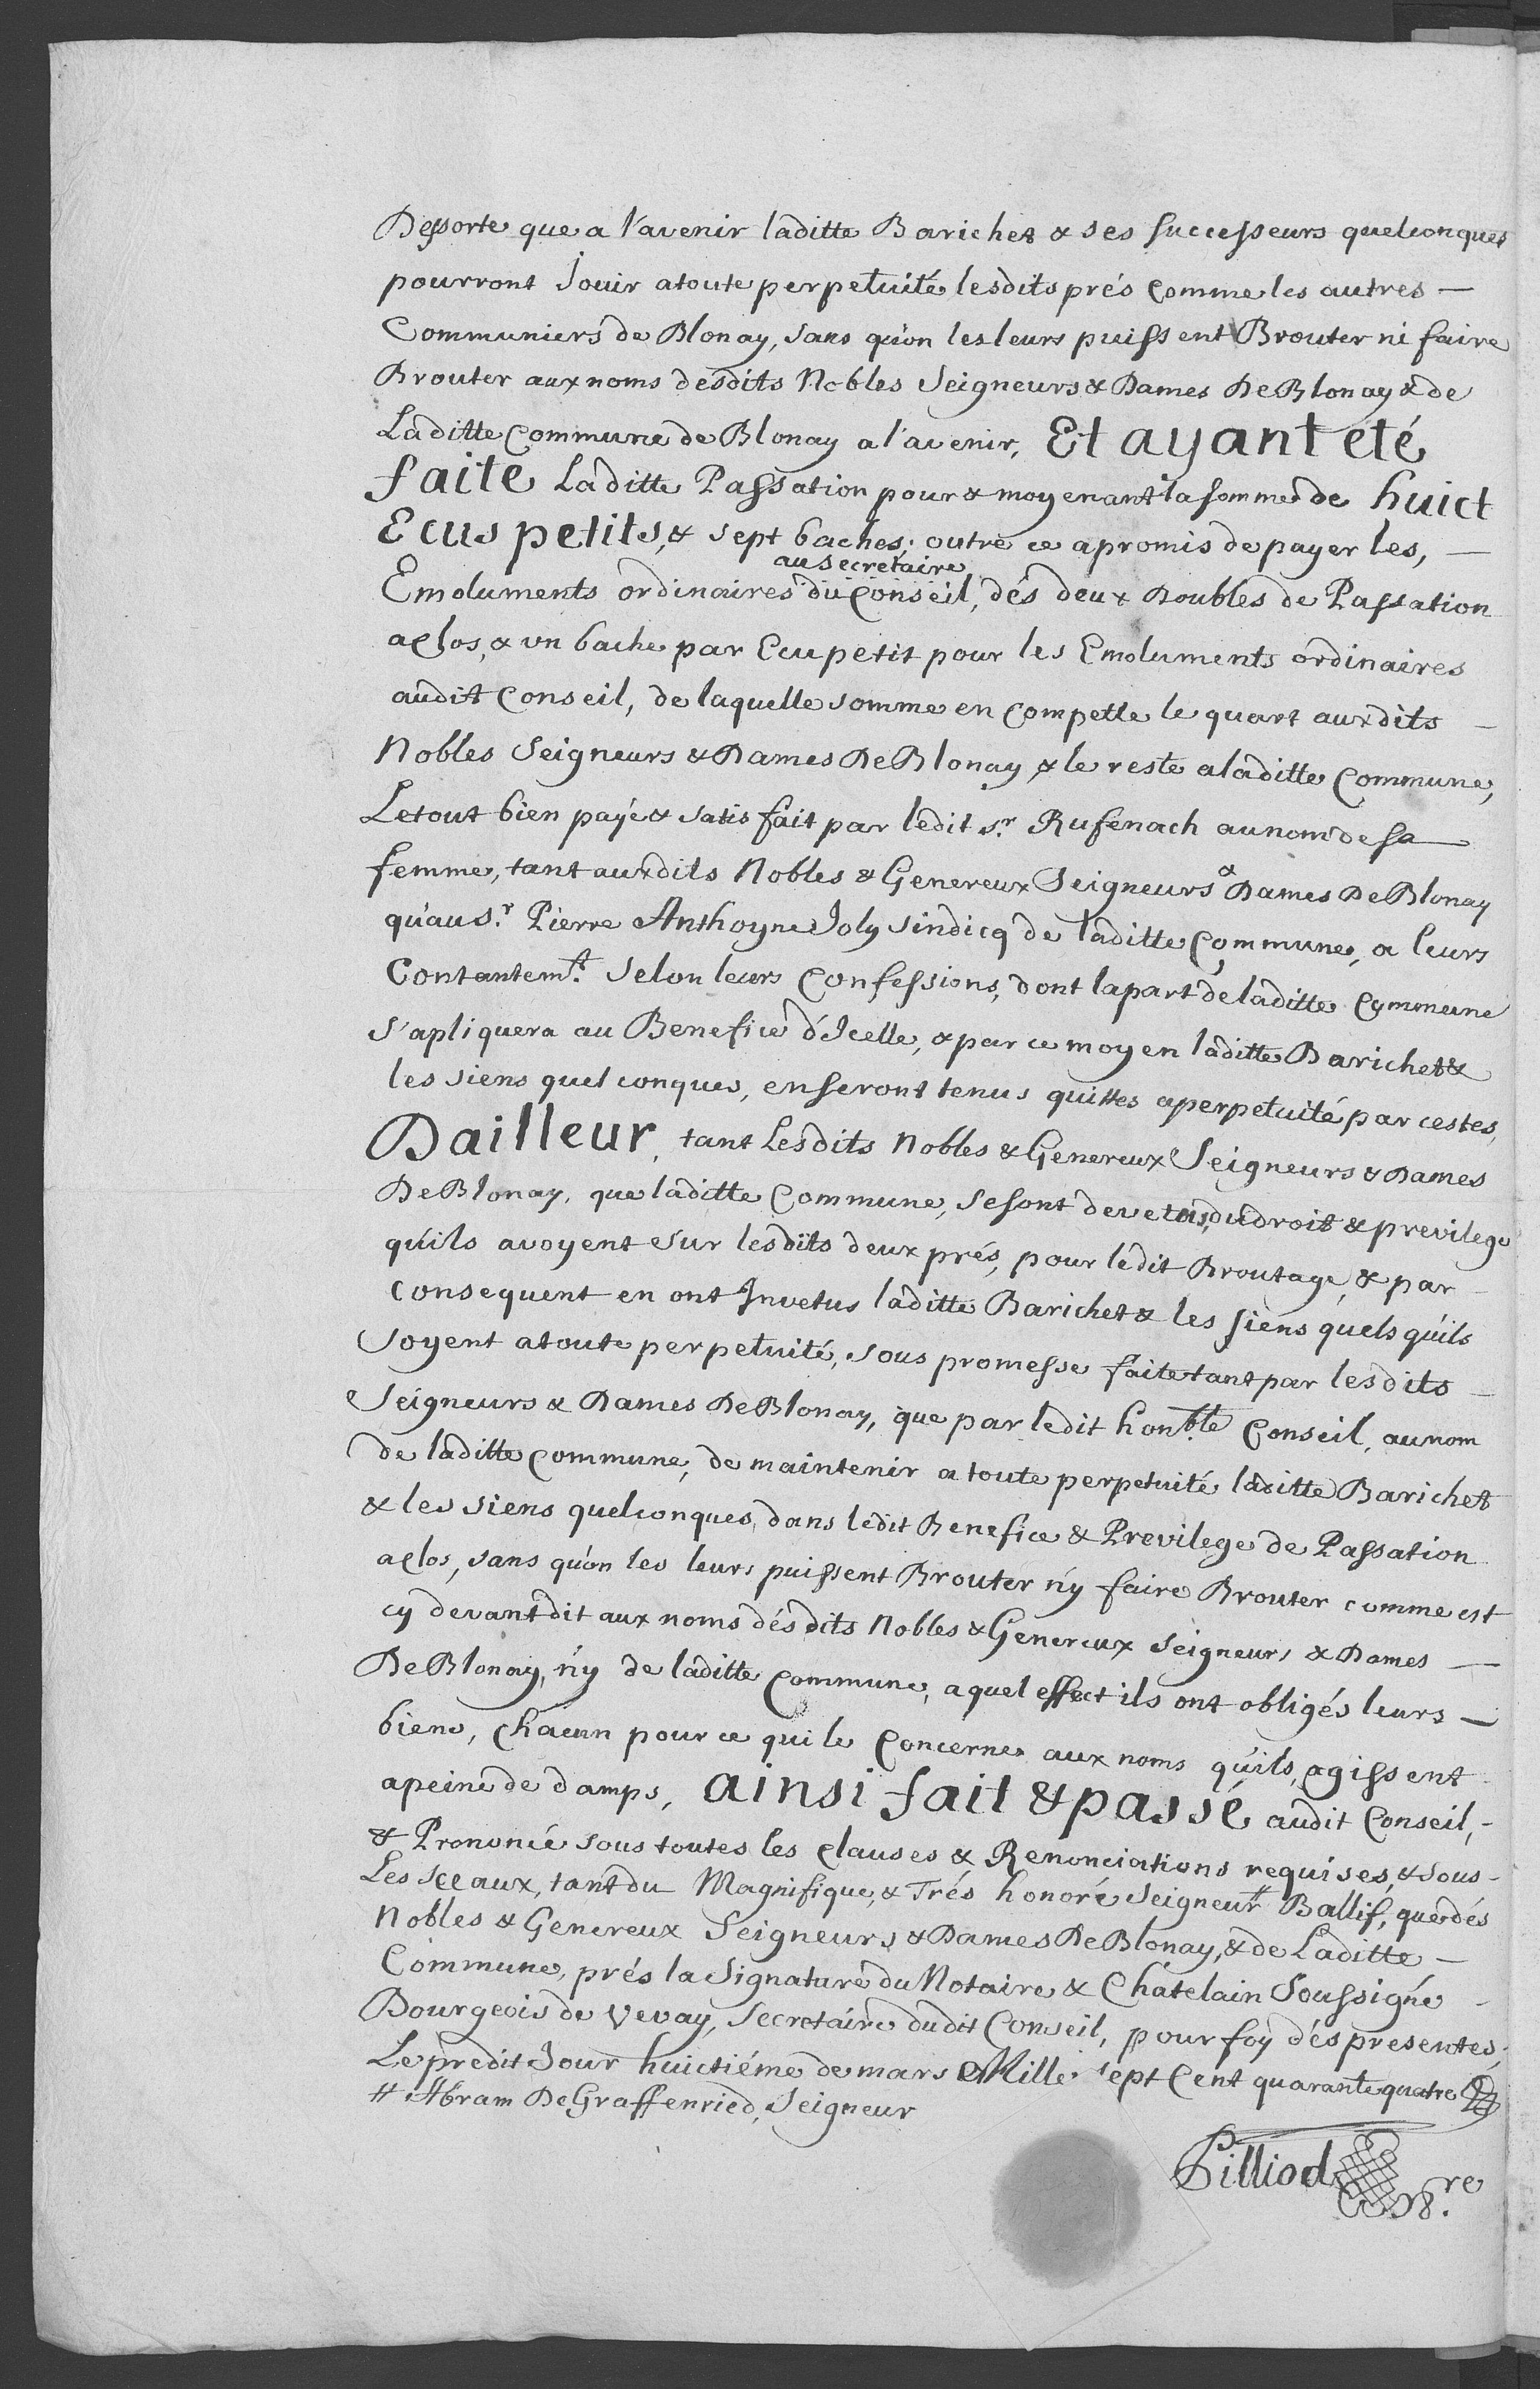 Dessorte que a l'avenir laditte Barichet & ses successeurs quelconques
pourront Jouir atoute perpetuité lesdits prés comme les autres —
Communiers de Blonay, sans qu'on les leurs puissent Brouter ni faire
Brouter aux noms desdits Nobles Seigneurs & Dames De Blonay & de
Laditte Commune de Blonay a l'avenir, Et ayant eté
faite Laditte Passation pour & moyenant la somme de huict
Ecus petits, & sept baches; outre ce apromis de payer les, —
au secretaire
Emoluments ordinaires du Conseil, dés deux Doubles de Passation
aclos, & un bache par Ecu petit pour les Emoluments ordinaires
audit Conseil, de laquelle somme en compette le quart auxdits —
Nobles Seigneurs & Dames De Blonay & le reste a laditte Commune,
Le tout bien payé & satisfait par ledit S.r Rufenach au nom de sa —
femme, tant auxdits Nobles & Genereux Seigneurs & Dames De Blonay
qu'au S.r Pierre Anthoyne Joly sindicq de laditte Commune, a leurs
Contantem.t selon leurs Confessions, dont la part de laditte Commune
s'apliquera au Benefice d'Icelle, & par ce moyen laditte Barichet &
les siens quelconques, en seront tenus quittes aperpetuité par cestes,
Dailleur, tant Lesdits Nobles & Genereux Seigneurs & Dames
De Blonay, que laditte Commune, se sont devetus, du droit & previlege
qu'ils avoyent sur lesdits deux prés, pour ledit Broutage, & par —
consequent en ont Invetus laditte Barichet & les siens quels qu'ils
soyent atoute perpetuité, sous promesse faite tant par lesdits —
Seigneurs & Dames De Blonay, que par ledit hon.ble Conseil, au nom
de laditte Commune, de maintenir a toute perpetuité laditte Barichet
& les siens quelconques, dans ledit Benefice & Previlege de Passation
aclos, sans qu'on les leurs puissent Brouter n'y faire Brouter comme est
cy devant dit aux noms désdits Nobles & Genereux Seigneurs & Dames —
De Blonay, n'y de laditte Commune, a quel effect ils ont obligés leurs —
biens, chacun pour ce qui le concerne aux noms qu'ils, agissent
apeine de damps, ainsi fait & passé audit Conseil, -
& Prononcé sous toutes les clauses & Renonciations requises, & sous -
Les sceaux, tant du Magnifique, & Trés honoré Seigneur # Ballif, que dés
Nobles & Genereux Seigneurs & Dames De Blonay, & de Laditte —
Commune, prés la Signature du Notaire & Châtelain Soussigné -
Bourgeois de Vevay, Secretaire dudit Conseil, pour foy dés presentes,
Le predit Jour huictiéme de mars Mille sept Cent quarante quatre
# Abram De Graffenried, Seigneur
Pilliod